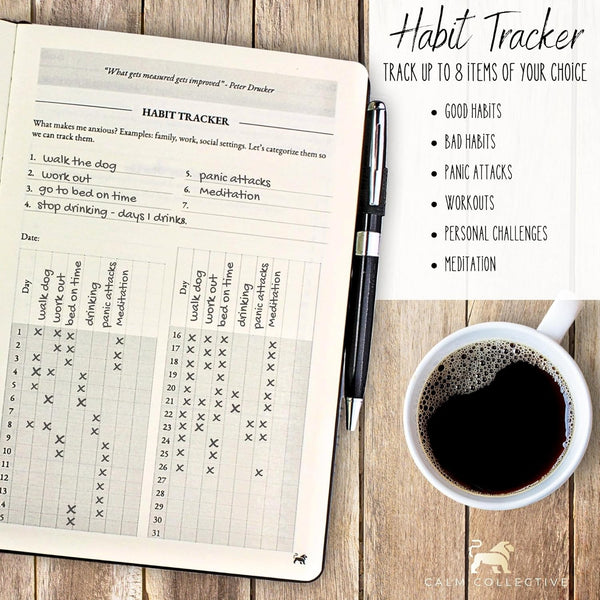 "What gets measured gets improved" - Peter Drucker
HABIT TRACKER
What makes me anxious? Examples: family, work, social settings. Let's categorize them so
we can track them.
1. walk the dog
2. work out
3. go to bed on time
4. stop drinking - days I drink
5. panic attacks
6. Meditation
7.
8.
Date:
Day walk dog work out bed on time drinking panic attacks Meditation
1 x x x
2 x x x
3 x x x
4 x x x
5 x x
6 x x
7 x
8 x x x
9 x x
10 x x
11 x
12 x
13 x
4 x x
5 x x
Day walk dog work out bed on time drinking panic attacks Meditation
16 x x x
17 x x x x
18 x x x x
19 x x x x
20 x x x x
21 x x x x
22 x x x x
23 x x x
24 x x x x
25 x x
26 x x x
27
28
29
30
31
Habit Tracker
TRACK UP TO 8 ITEMS OF YOUR CHOICE
• GOOD HABITS
• BAD HABITS
• PANIC ATTACKS
• WORKOUTS
• PERSONAL CHALLENGES
• MEDITATION
CALM COLLECTIVE